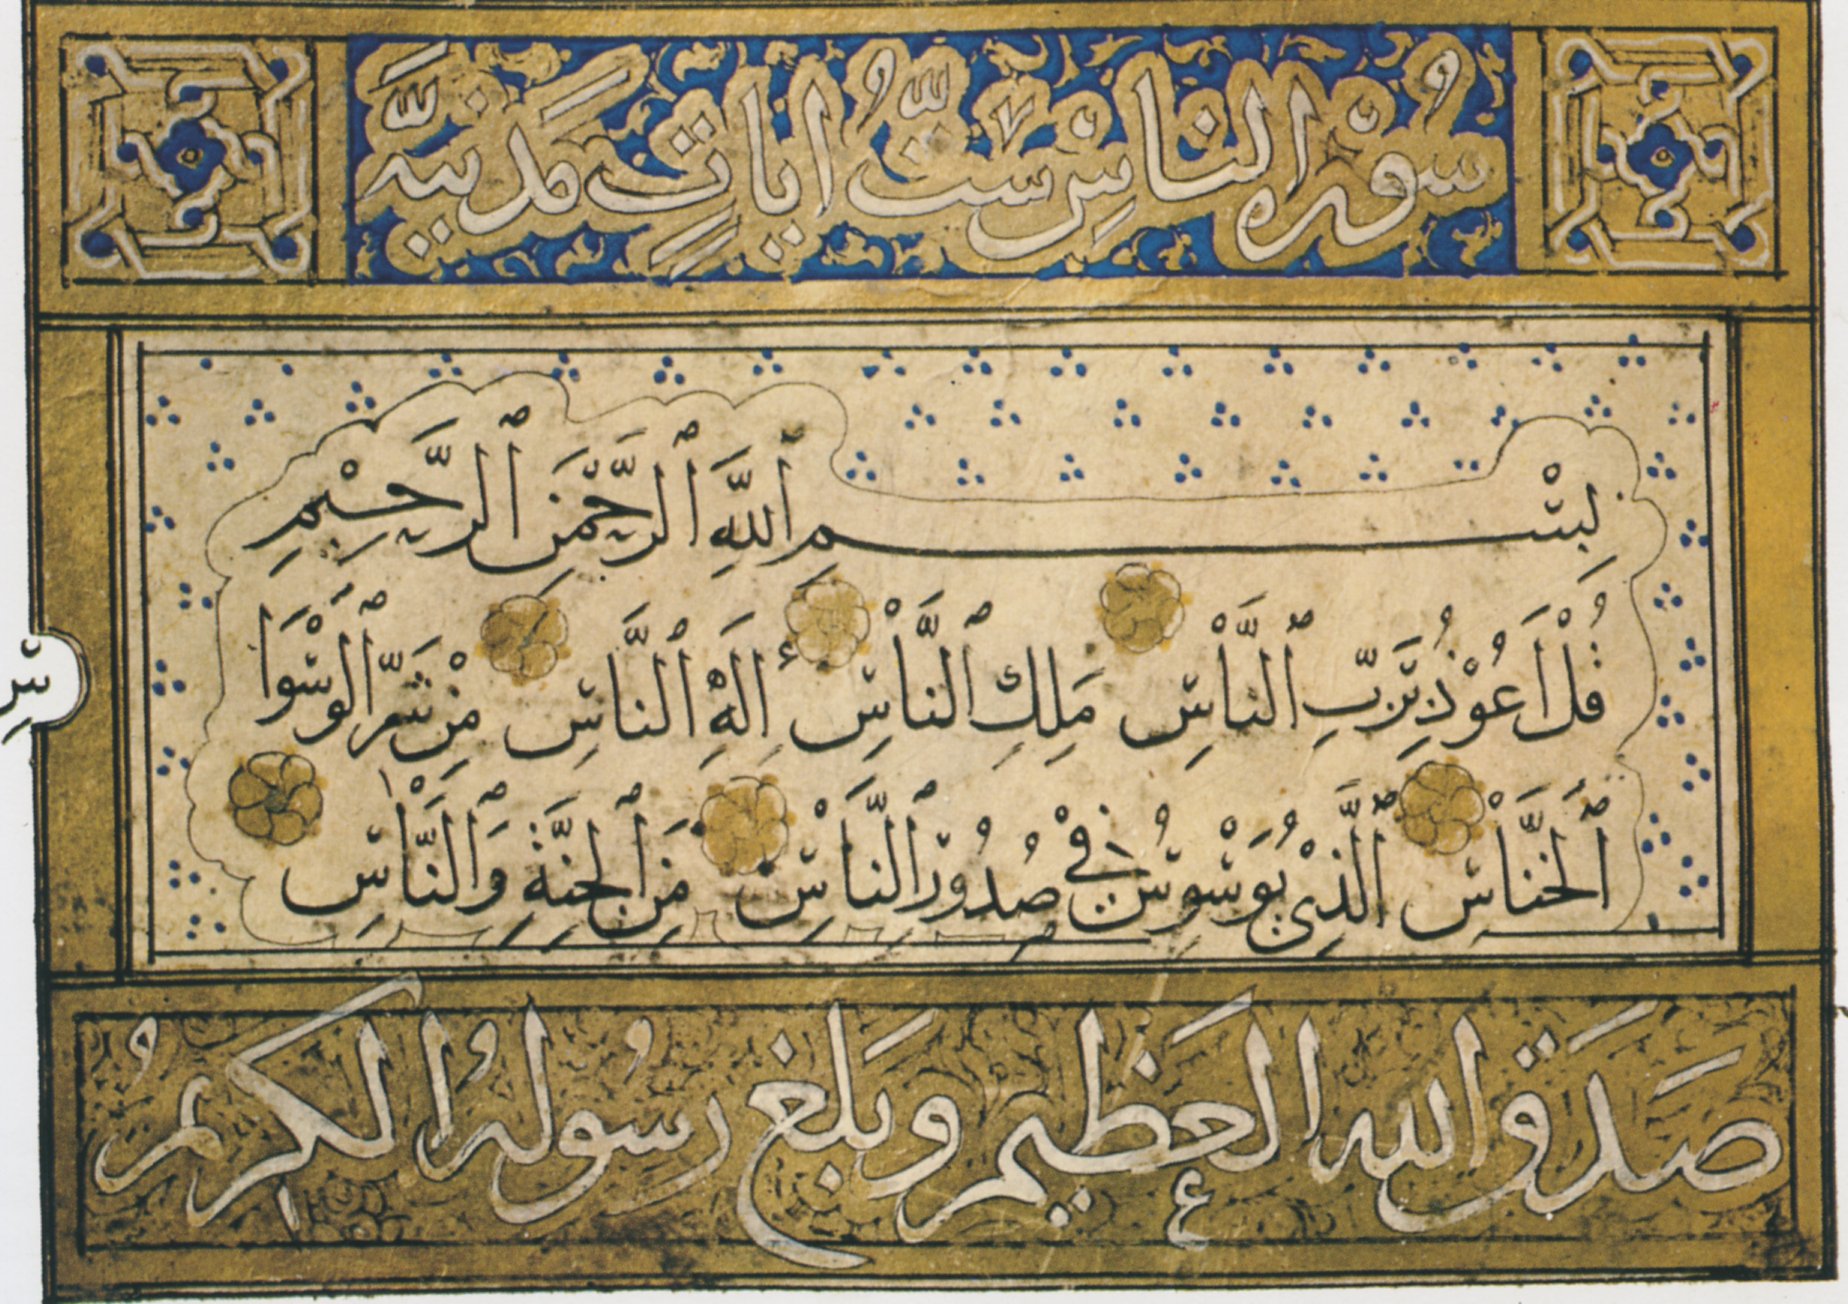 سُوْرة النَّاسْ ستُّ اياتٍ مَدَنيَّه
بِسْمِ ٱللَّهِ ٱلرَّحْمَنِ ٱلرَّحِيْمِ
قُلْ اَعُوْذُ بِرَبِّ ٱلنَّاسِ مَلِكِ ٱلنَّاسِ اِلَهِ ٱلنَّاسِ مِنْ شَرِّ ٱلْوَسْوَاسِ
ٱلْخَنَّاسِ ٱلَّذِيْ يُوَسْوِسُ فِيْ صُدُوْرِ ٱلنَّاسِ مِنَ ٱلْجِنَّةِ وَٱلنَّاسِ
صَدَقَ الله العَظيم وَبَلغَ رسُولهُ الكريمُ